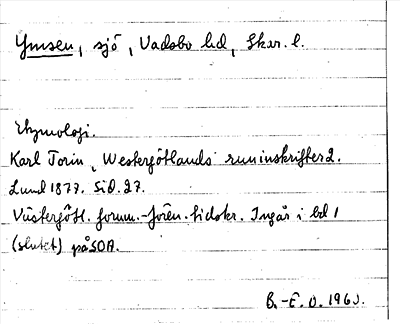 Ymsen, sjö, Vadsbo hd, Skar. l.
Etymologi.
Karl Torin, Westergötlands runinskrifter 2.
Lund 1877. Sid. 27.
Västergötl. fornm.-fören. tidskr. Ingår i bd 1
(slutet) på SOA.
B.-E. O. 1963.